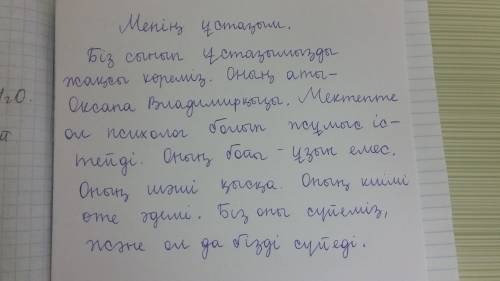 Менің ұстазым.
Біз сынып ұстазымызды
жақсы көреміз. Оның аты-
Оксана Владимирқызы. Мектепте
ол психолог болып жұмыс іс-
тейді. Оның бойы - ұзын емес.
Оның шәші қысқа. Оның киімі
өте әдемі. Біз оны сүйеміз,
және ол да бізді сүйеді.